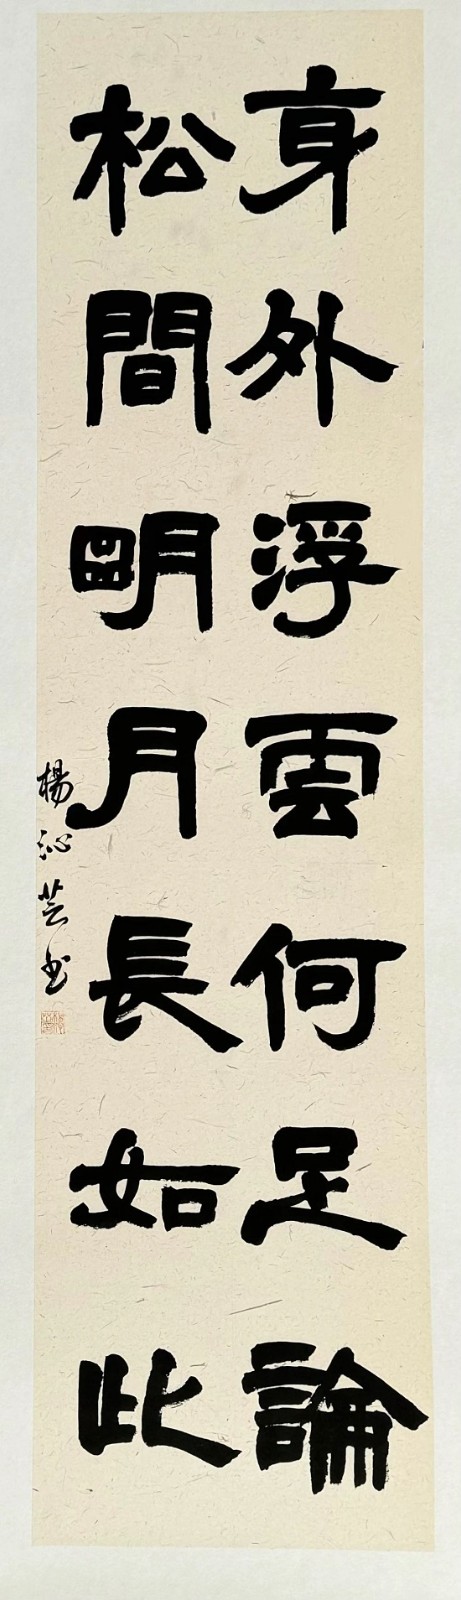 身外浮雲何足論
松間明月長如此
楊沁芸书